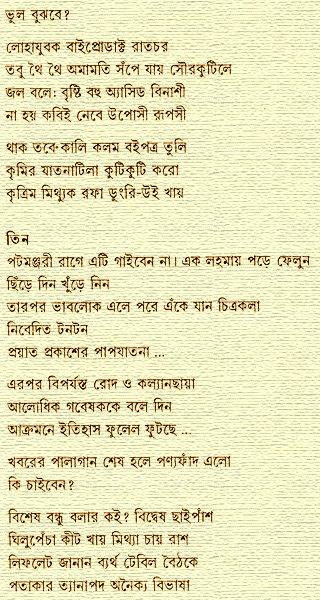 ভুল বুঝবে?
লোহাযুবক বাইপ্রোডাক্ট রাতচর
তবু থৈ থৈ অমামতি সঁপে যায় সৌরকুটিলে
জল বলে: বৃষ্টি বহু অ্যাসিড বিনাশী
না হয় কবিই নেবে উপোসী রূপসী
থাক তবে কালি কলম বইপত্র তুলি
কৃমির যাতনাটিলা কুটিকুটি করো
কৃত্রিম মিথ্যুক রফা ডুংরি-উই খায়
তিন
পটমঞ্জরী রাগে এটি গাইবেন না। এক লহমায় পড়ে ফেলুন
ছিঁড়ে দিন খুঁড়ে নিন
তারপর ভাবলোক এলে পরে এঁকে যান চিত্রকলা
নিবেদিত টনটন
প্রয়াত প্রকাশের পাপযাতনা ...
এরপর বিপর্যস্ত রোদ ও কল্যানছায়া
আলোধিক গবেষককে বলে দিন
আক্রমনে ইতিহাস ফুলেল ফুটছে ...
খবরের পালাগান শেষ হলে পণ্যফাঁদ এলো
কি চাইবেন?
বিশেষ বন্ধু বলার কই? বিদ্বেষ ছাইপাঁশ
ঘিলুপেঁচা কীট খায় মিথ্যা চায় রাশ
লিফলেট জানান ব্যর্থ টেবিল বৈঠকে
পতাকার ত্যানাপদ অনৈক্য বিভাষা